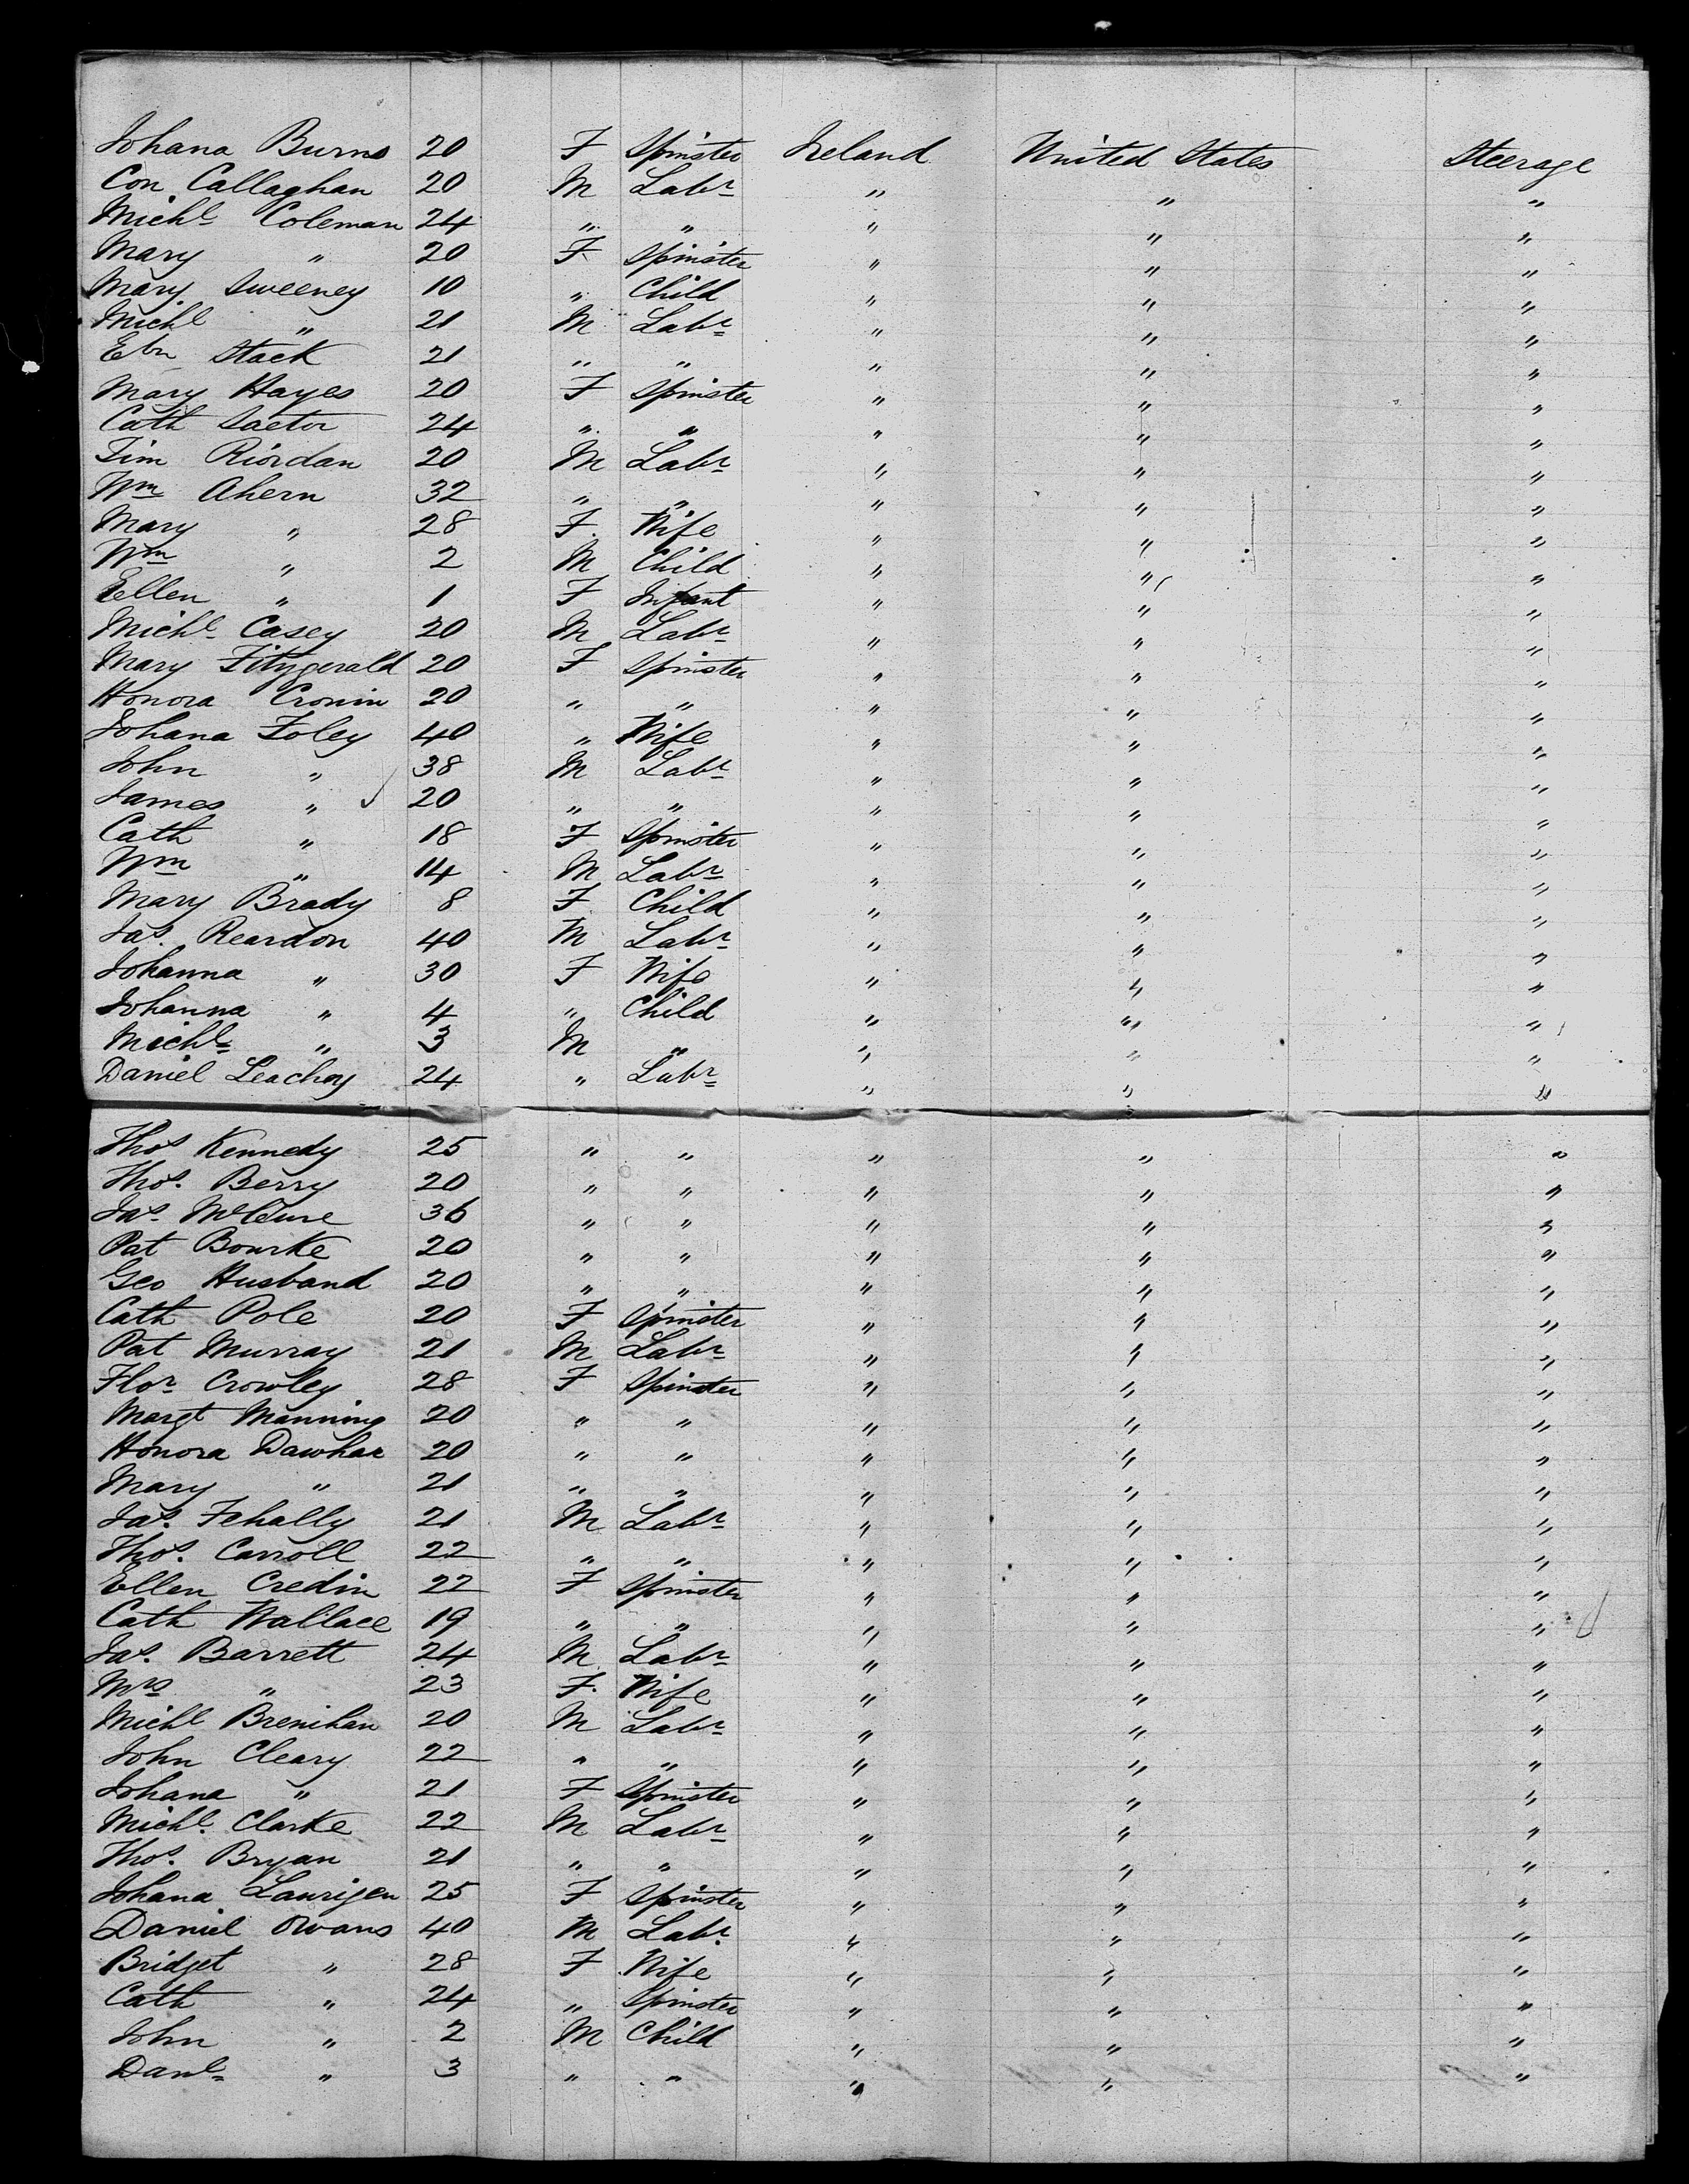 Johana Burns 20 F Spinster Ireland United States Steerage
Con Callaghan 20 M Labr " " "
Michl Coleman 24 " " " " "
Mary " 20 F Spinster " " "
Mary Sweeney 10 " Child " " "
Michl " 21 M Labr " " "
Ebn Stack 21 " " " " "
Mary Hayes 20 F Spinster " " "
Cath 24 " " " " "
Tim Riordan 20 M Labr " " "
Wm Ahern 32 " " " " "
Mary " 28 F. Wife " " "
Wm " 2 M Child " " "
Ellen " 1 F Infant " " "
Michl Casey 20 M Labr " " "
Mary Fitzgerald 20 F Spinster " " "
Honora Cronin 20 " " " " "
Johana Foley 40 " Wife " " "
John " 38 M Labr " " "
James " 20 " " " " "
Cath " 18 F Spinster " " "
Wm " 14 M Labr " " "
Mary Brady 8 F Child " " "
Jas. Reardon 40 M Labr " " "
Johanna " 30 F Wife " " "
Johanna " 4 " Child " " "
Michl " 3 M " " " "
Daniel Leachey 24 " Labr " " "
Thos Kennedy 25 " " " " "
Thos. Berry 20 " " " " "
Jas. McClure 36 " " " " "
Pat Bourke 20 " " " " "
Geo Husband 20 " " " " "
Cath Pole 20 F Spinster " " "
Pat Murray 21 M Labr " " "
Flor Crowley 28 F Spinster " " "
Margt Manning 20 " " " " "
Honora Dawhar 20 " " " " "
Mary " 21 " " " " "
Jas. Fehally 21 M Labr " " "
Thos. Carroll 22 " " " " "
Ellen Credin 22 F Spinster " " "
Cath Wallace 19 " " " " "
Jas. Barrett 24 M Labr " " "
Mrs " 23 F. Wife " " "
Michl Brenihan 20 M Labr " " "
John Cleary 22 " " " " "
Johana " 21 F Spinster " " "
Michl. Clarke 22 M Labr " " "
Thos. Bryan 21 " " " " "
Johana Laurigen 25 F Spinster " " "
Daniel Owans 40 M Labr. " " "
Bridget " 28 F Wife " " "
Cath " 24 " Spinster " " "
John " 2 M Child " " "
Danl " 3 " " " " "